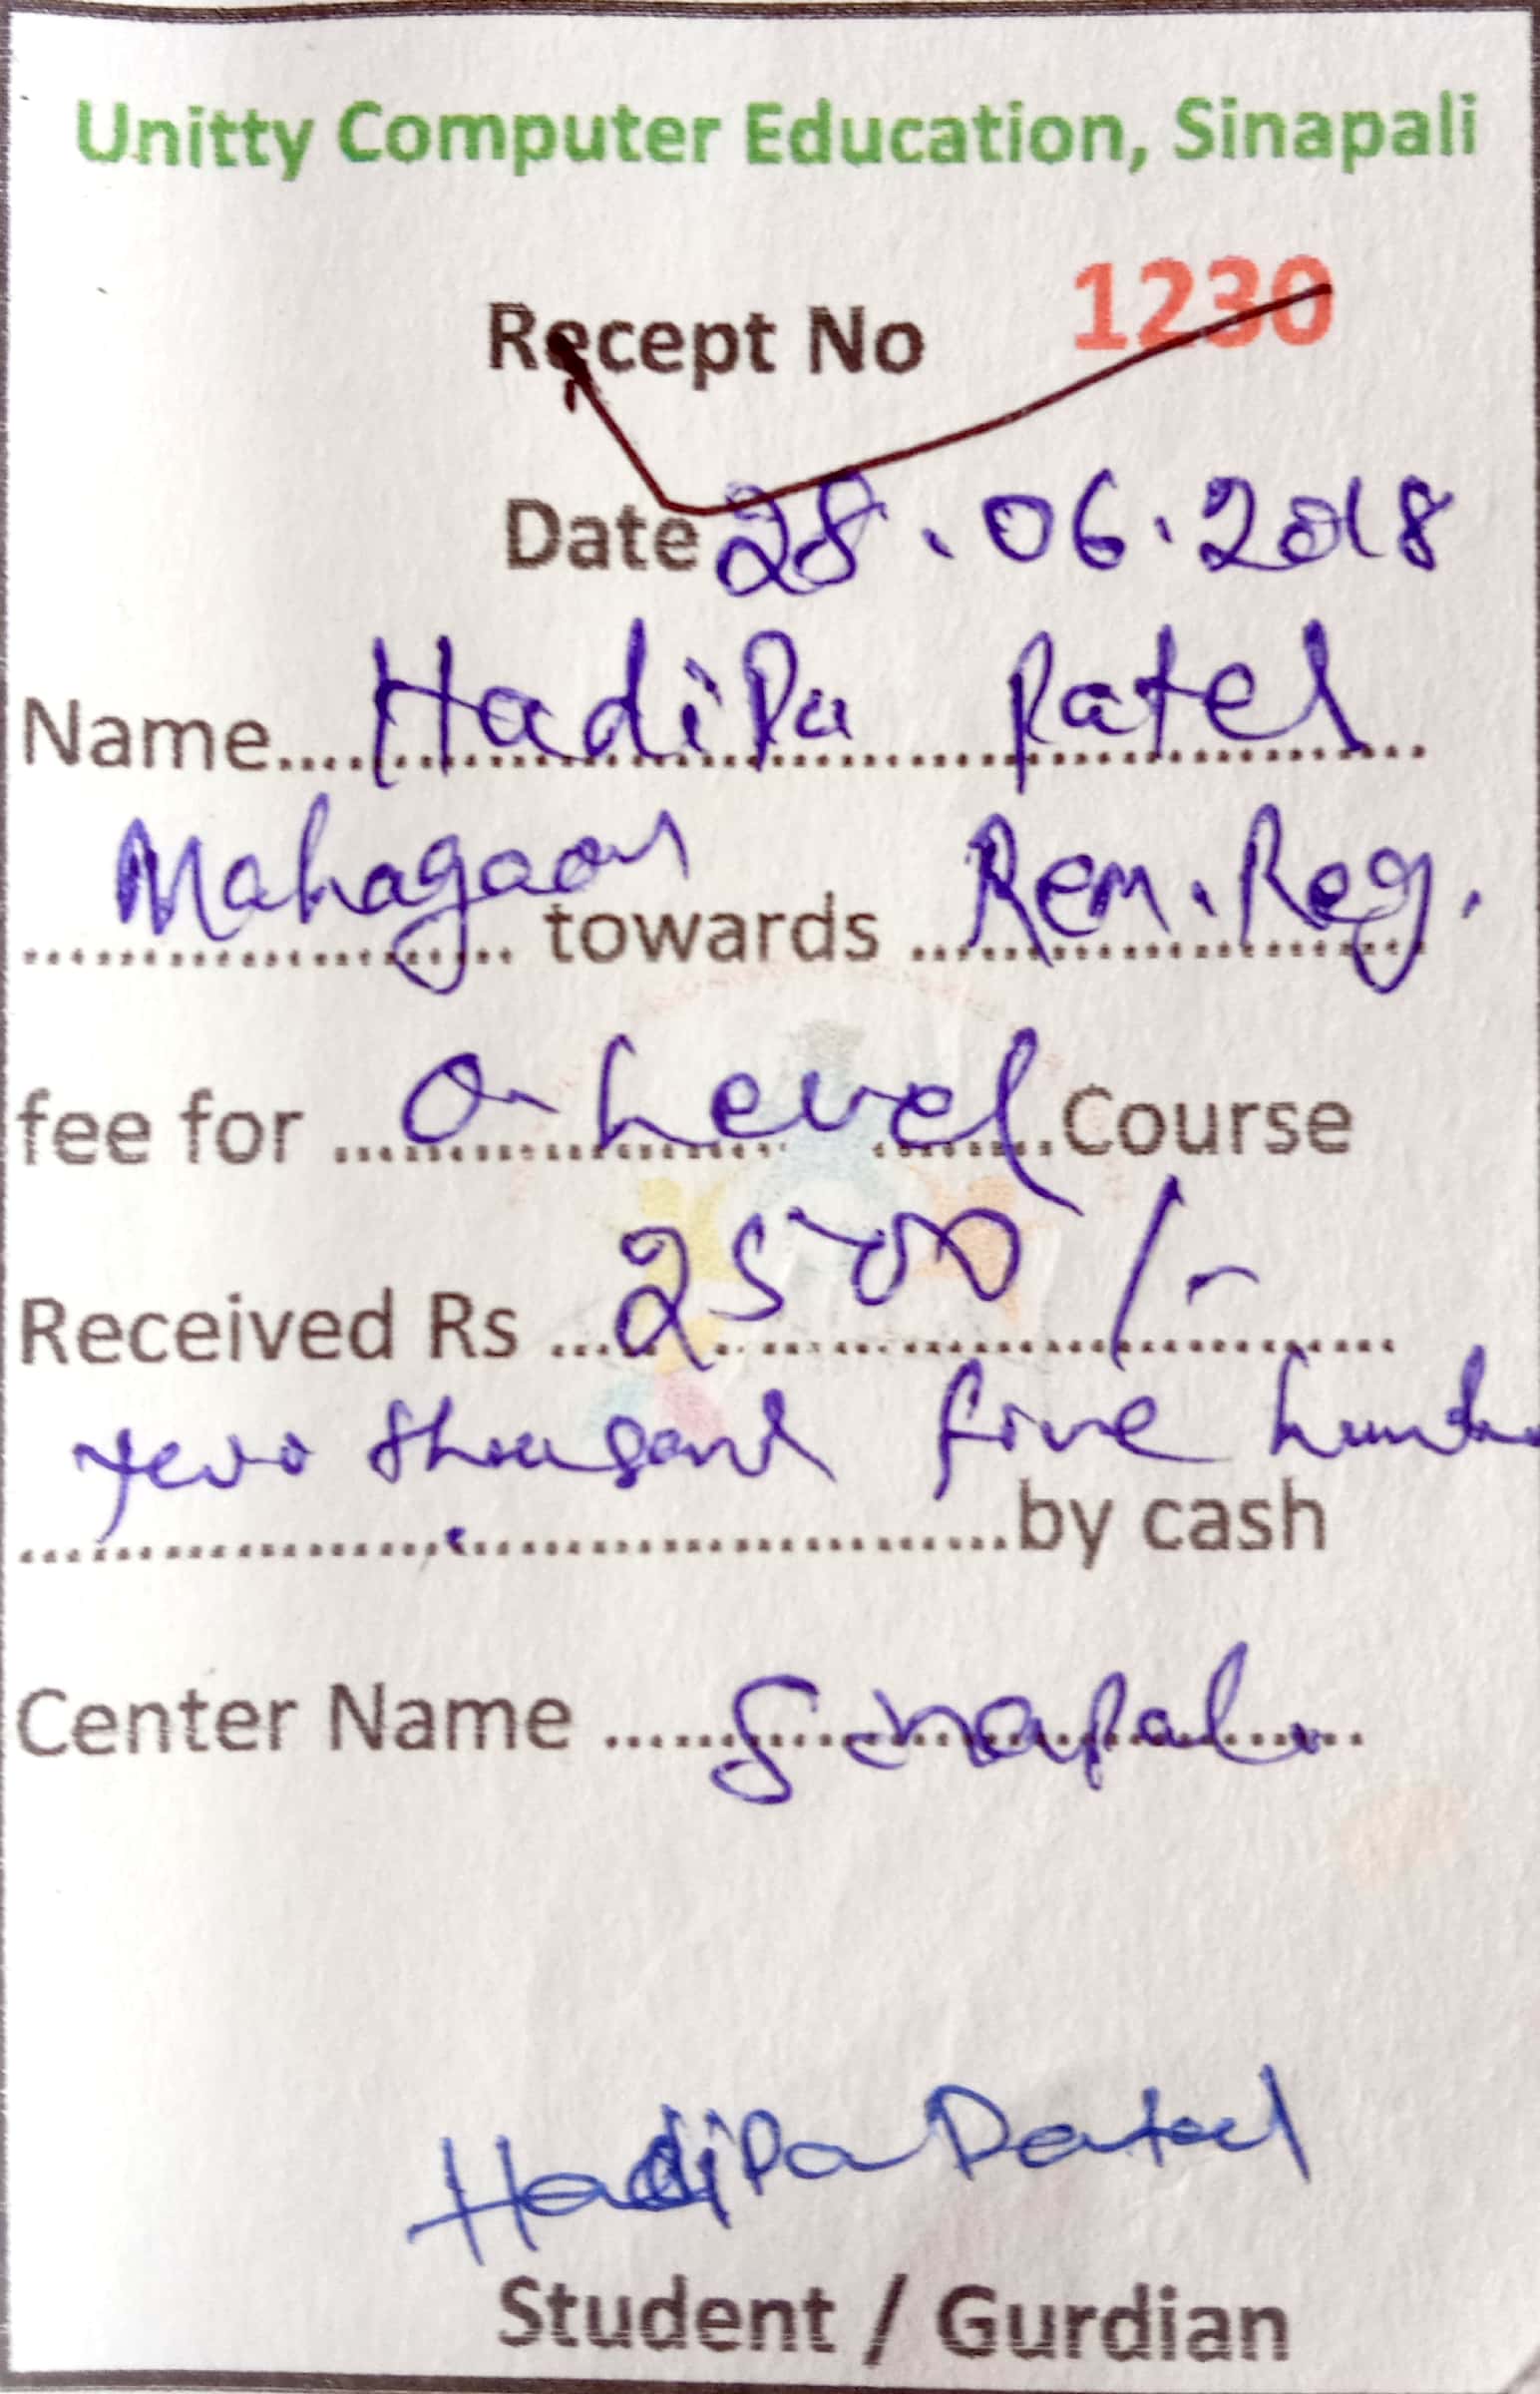 Unitty Computer Education, Sinapali
Recept No 1230
Date 28.06.2018
Name.... Hadipa Patel
Mahagaon towards Rem. Reg.
fee for O-Level Course
Received Rs 2500/-
Two thousand five hundre
by cash
Center Name Sinapali
Hadipa Patel
Student / Gurdian